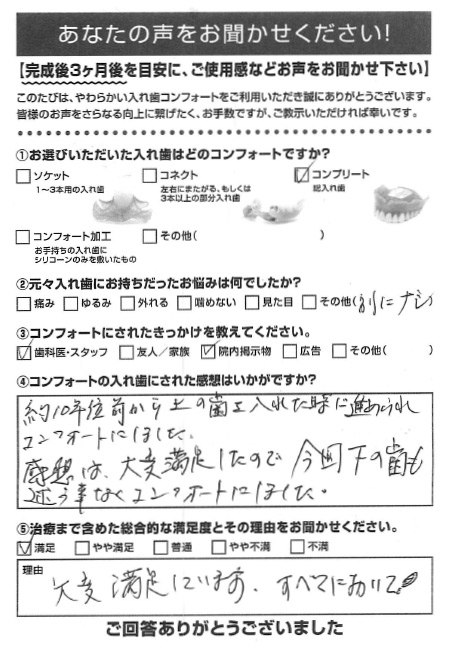 あなたの声をお聞かせください!
【完成後3ヶ月後を目安に、ご使用感などお声をお聞かせ下さい】
このたびは、やわらかい入れ歯コンフォートをご利用いただき誠にありがとうございます。
皆様のお声をさらなる向上に繋げたく、お手数ですが、ご教示いただければ幸いです。
①お選びいただいた入れ歯はどのコンフォートですか?
□ソケット
1〜3本用の入れ歯
□コネクト
左右にまたがる、もしくは
3本以上の部分入れ歯
☑コンプリート
総入れ歯
□コンフォート加工
お手持ちの入れ歯に
シリコーンのみを敷いたもの
□その他( )
②元々入れ歯にお持ちだったお悩みは何でしたか?
□痛み □ゆるみ □外れる □噛めない □見た目 □その他(別にナシ)
③コンフォートにされたきっかけを教えてください。
☑歯科医・スタッフ □友人/家族 ☑院内掲示物 □広告 □その他( )
④コンフォートの入れ歯にされた感想はいかがですか?
約10年位前から上の歯を入れた時に進められ
コンフォートにしました。
感想は、大変満足したので今回下の歯も
迷う事なくコンフォートにしました。
⑤治療まで含めた総合的な満足度とその理由をお聞かせください。
☑満足 □やや満足 □普通 □やや不満 □不満
理由
大変満足しています、すべてにおいて
ご回答ありがとうございました